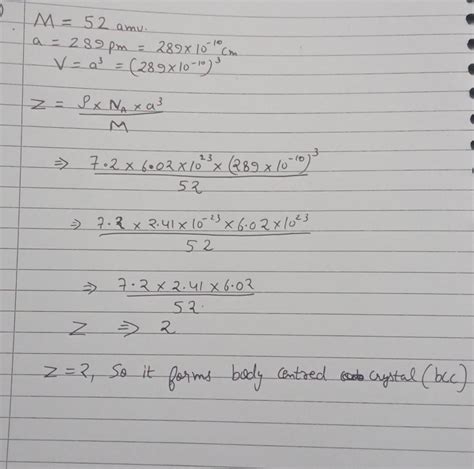 M = 52 amu.
a = 289pm = 289×10⁻¹⁰cm
V = a³ = (289×10⁻¹⁰)³
Z = ρ × Nₐ × a³ / M
⇒ 7.2 × 6.02×10²³ × (289 × 10⁻¹⁰)³ / 52
⇒ 7.2 × 2.41×10⁻²³ × 6.02×10²³ / 52
⇒ 7.2 × 2.41 × 6.02 / 52.
Z ⇒ 2
Z=2, So it forms body centred crystal (bcc)